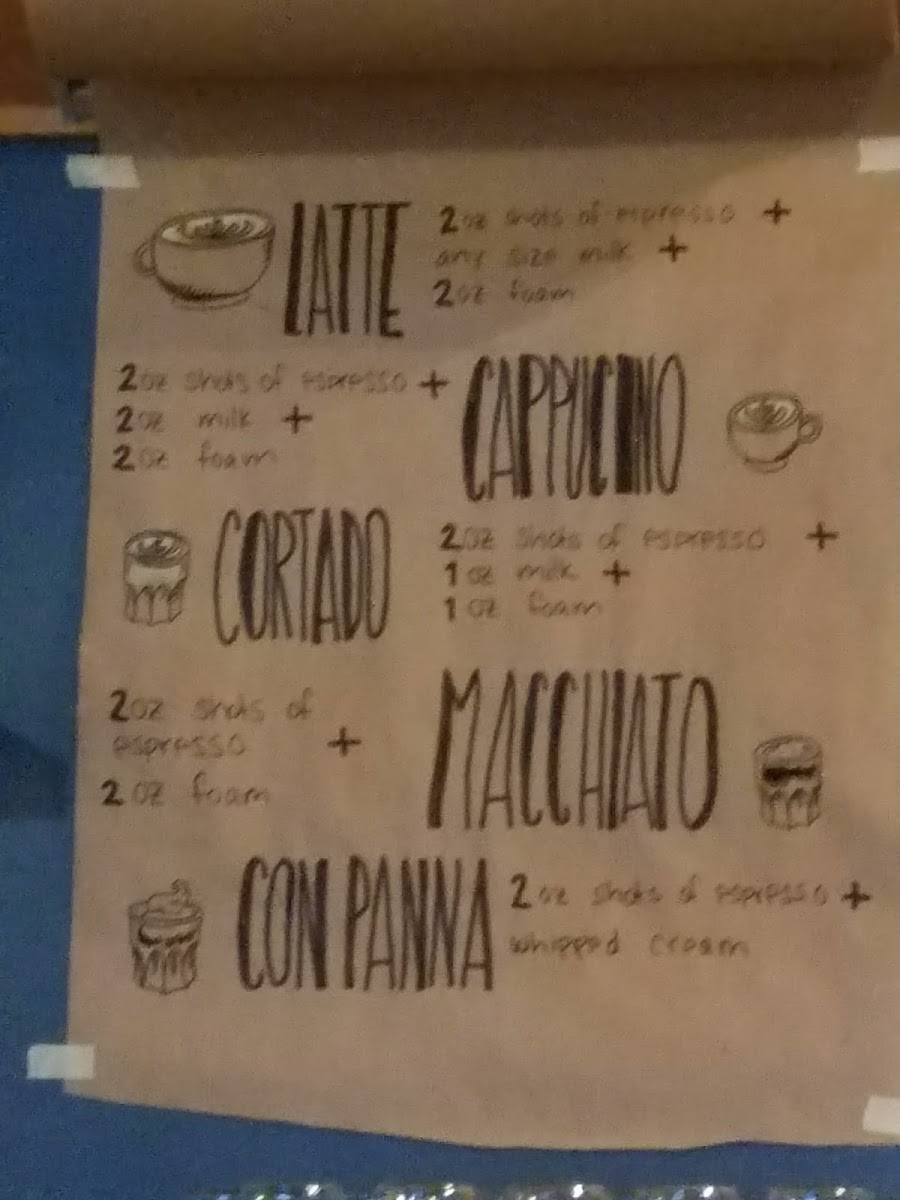 LATTE
2oz shots of espresso +
any size milk +
2oz foam
2oz shots of espresso +
2oz milk +
2oz foam
CAPPUCINO
CORTADO
2oz shots of espresso +
1oz milk +
1oz foam
2oz shots of
espresso +
2oz foam
MACCHIATO
CON PANNA
2oz shots of espresso +
whipped cream